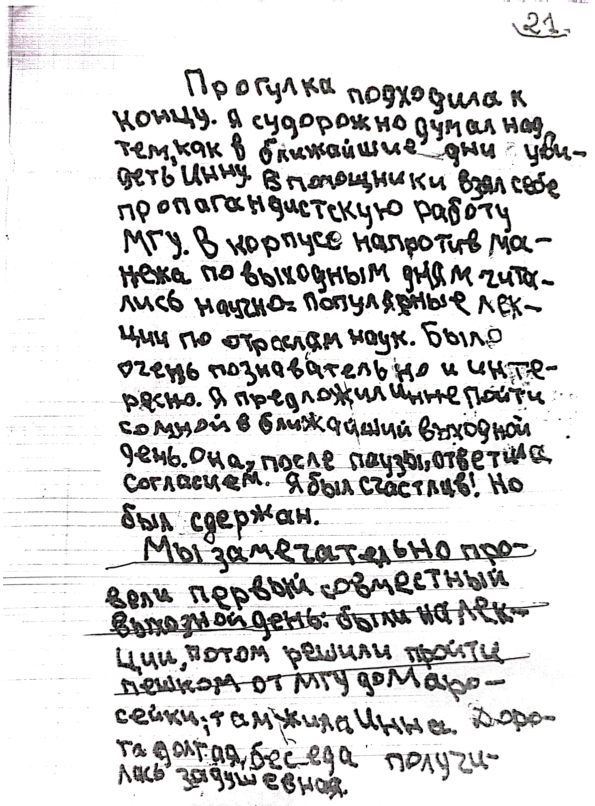 21.
Прогулка подходила к
концу. Я судорожно думал над
тем, как в ближайшие дни уви-
деть Инну. В помощники взял себе
пропагандистскую работу
МГУ. В корпусе напротив Ма-
нежа по выходным дням чита-
лись научно-популярные лек-
ции по отраслям наук. Было
очень познавательно и инте-
ресно. Я предложил Инне пойти
со мной в ближайший выходной
день. Она, после паузы, ответила
согласием. Я был счастлив! Но
был сдержан.
Мы замечательно про-
вели первый совместный
выходной день: были на лек-
ции, потом решили пройти
пешком от МГУ до Маро-
сейки; там жила Инна. Доро-
га долгая, беседа получи-
лась задушевная.